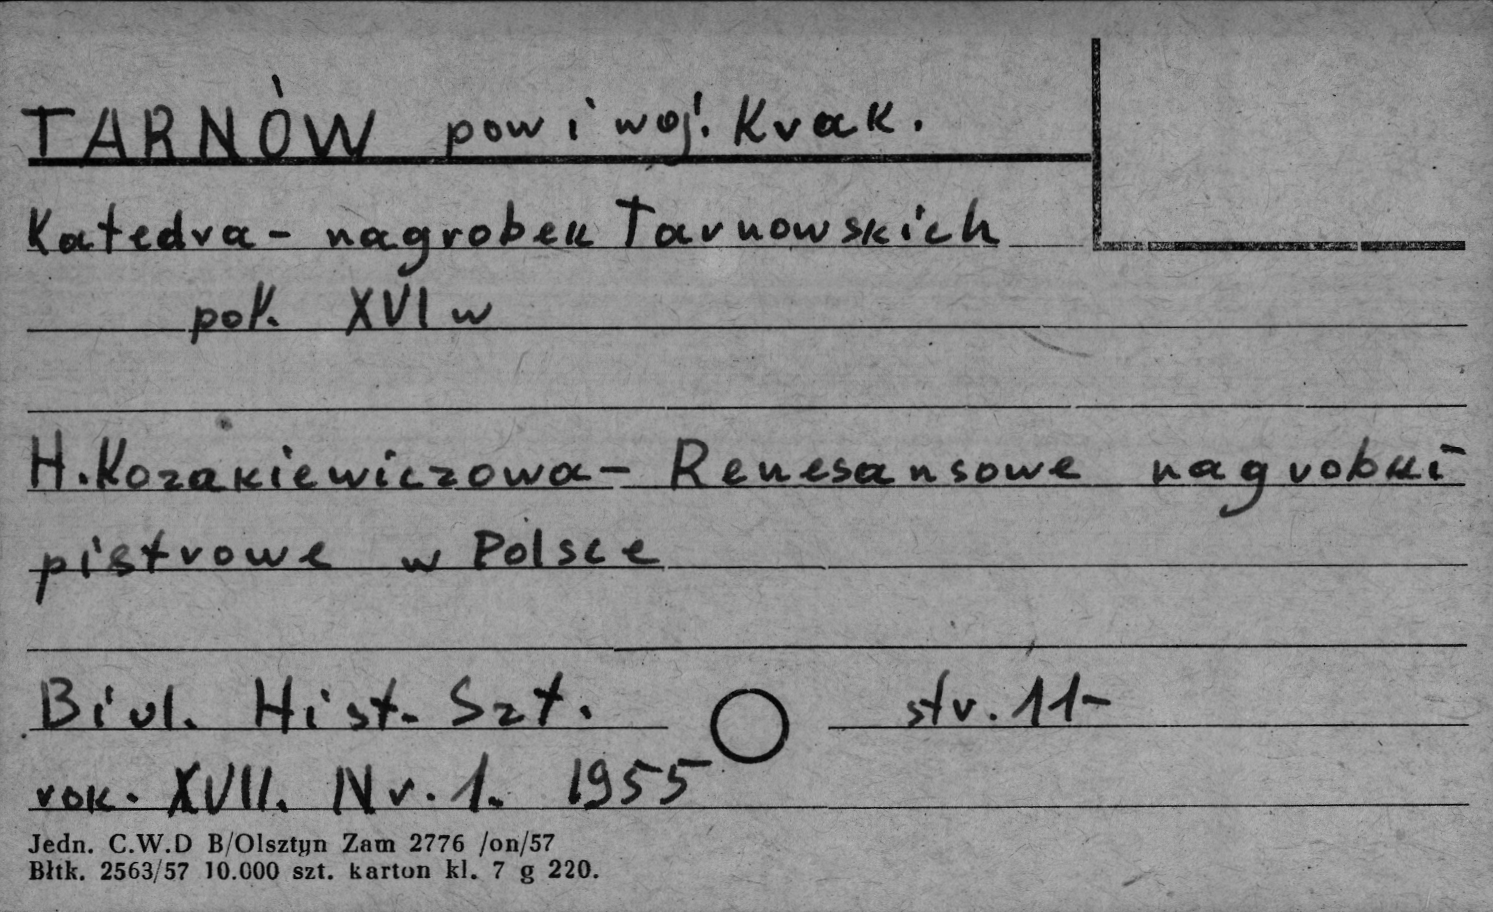 TARNÓW pow i woj. Krak.
Katedra - nagrobek Tarnowskich
poł. XVI w
H. Kozakiewiczowa - Renesansowe nagrobki
pistrowe w Polsce
Biul. Hist. Szt. str. 11-
rok. XVII. Nr. 1. 1955
Jedn. C.W.D B/Olsztyn Zam 2776 /on/57
Błtk. 2563/57 10.000 szt. karton kl. 7 g 220.